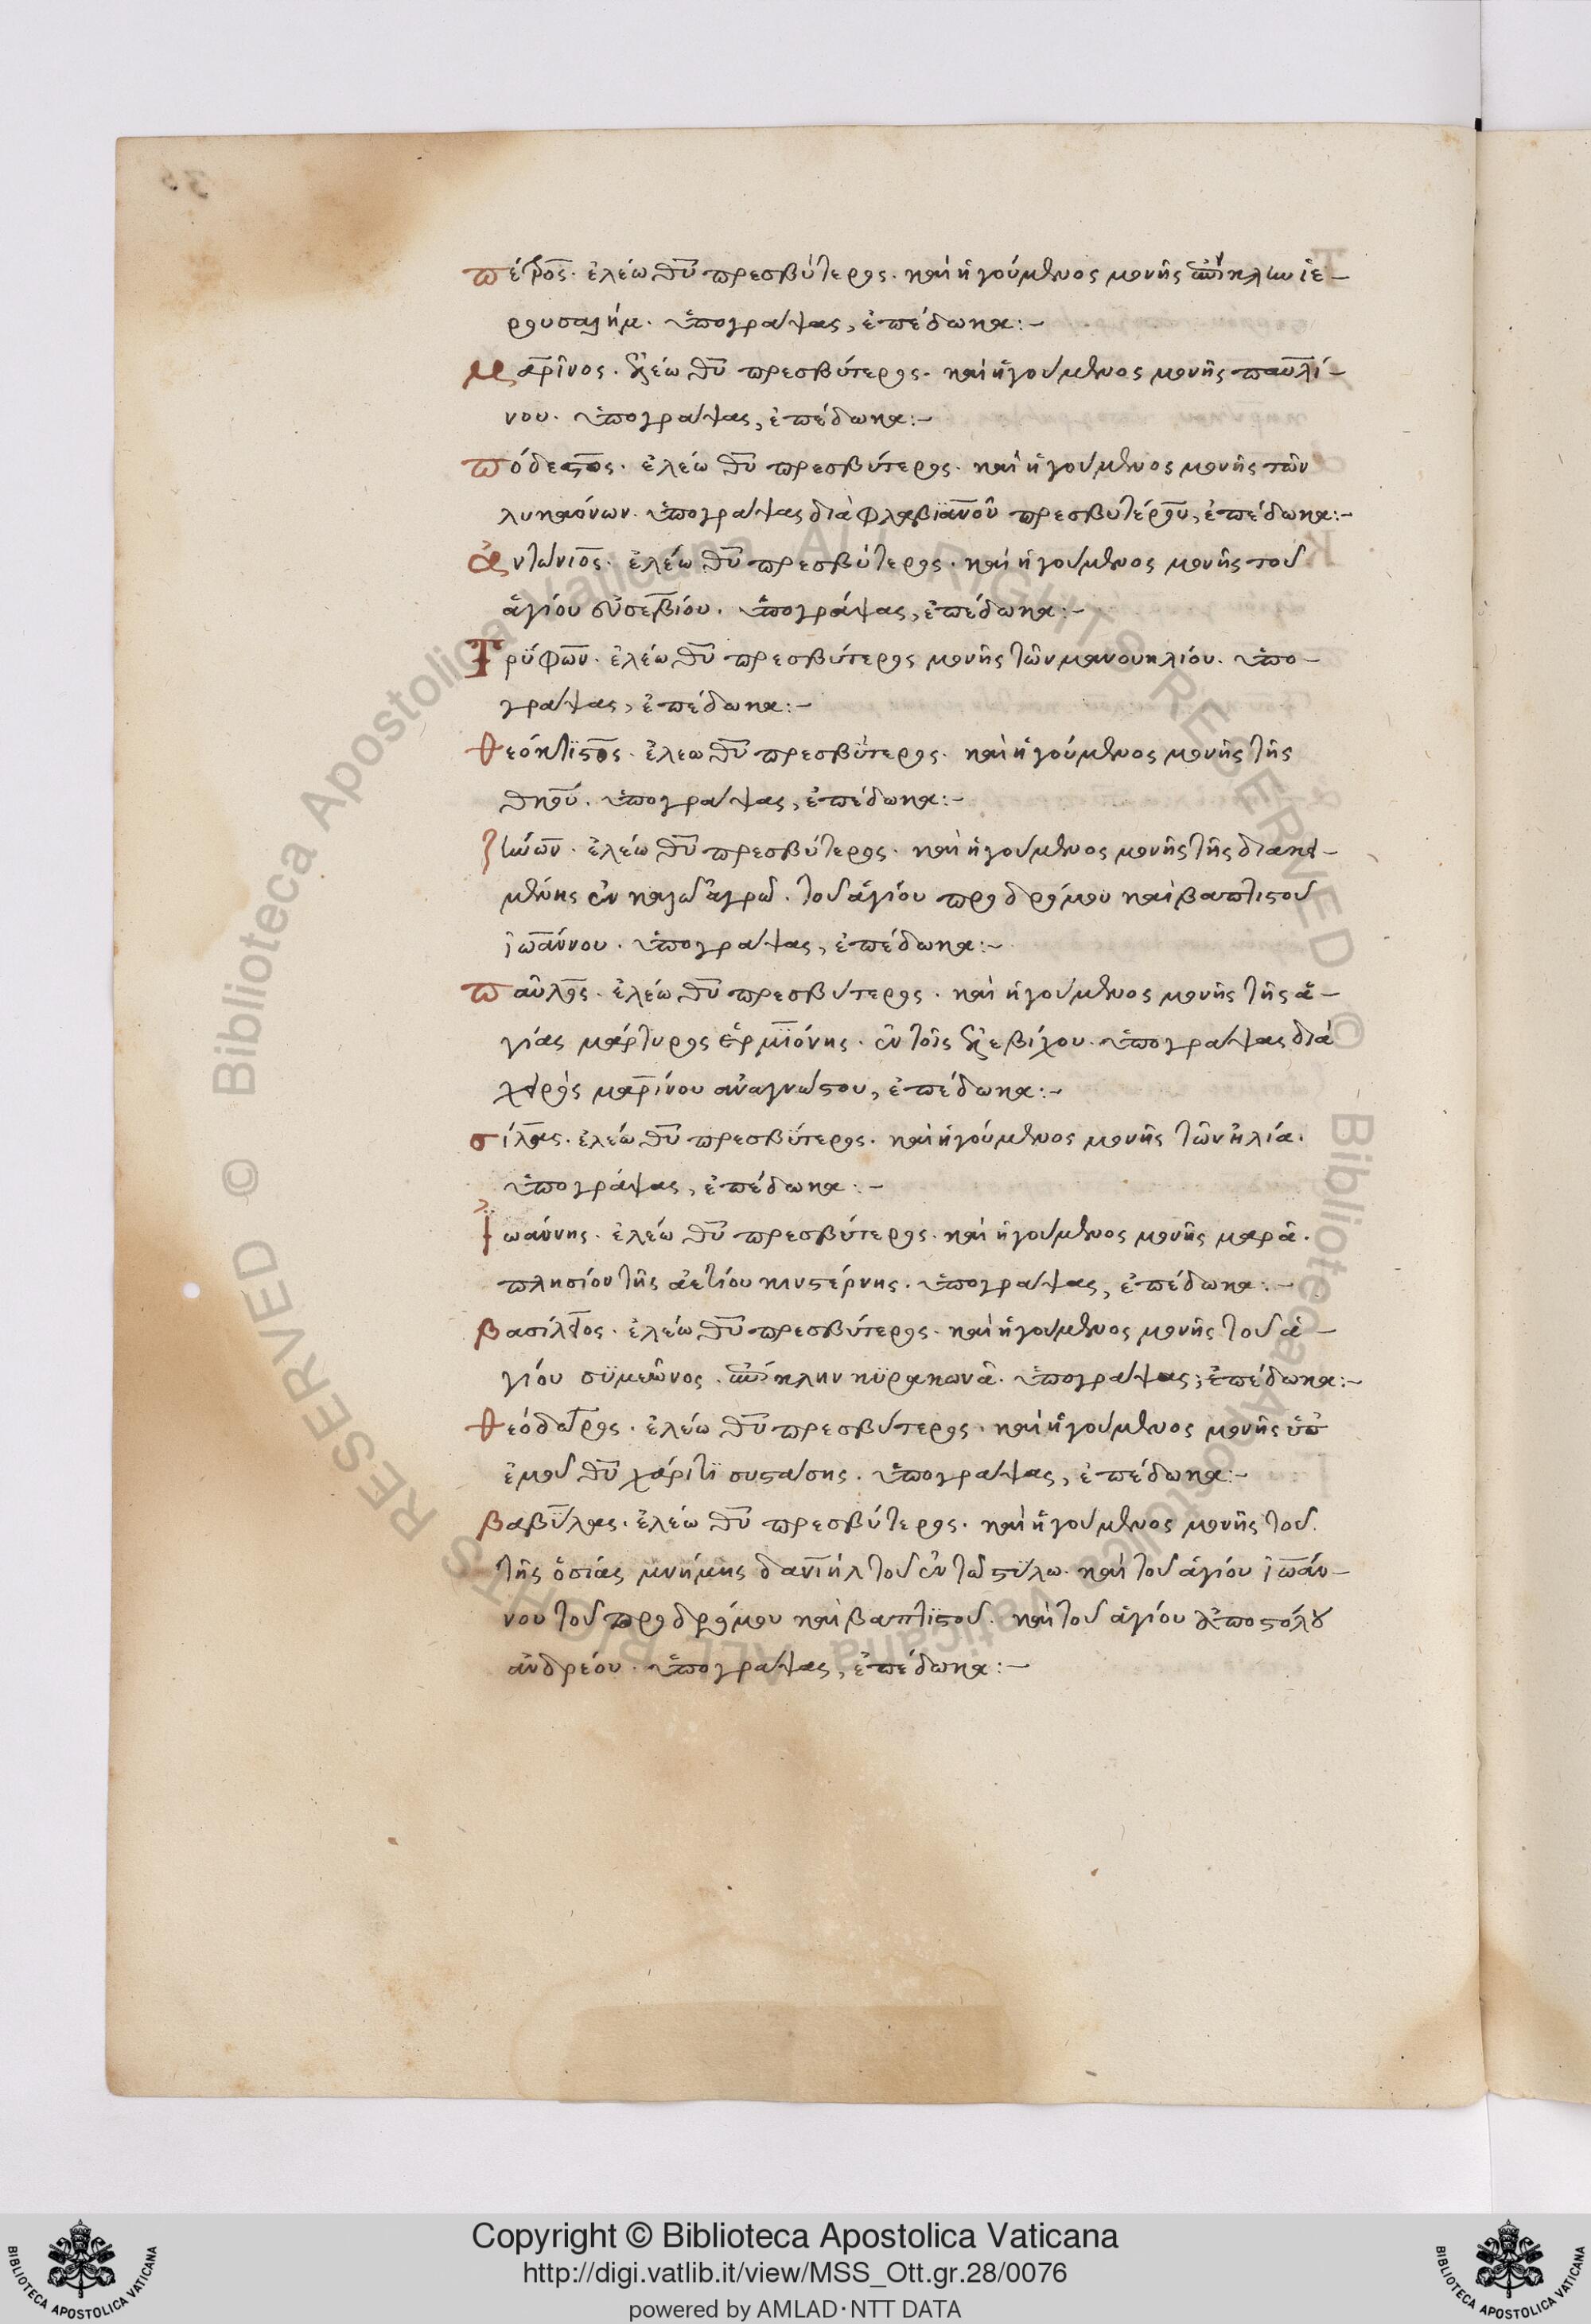 πέτρος. ἐλέω θῦ πρεσβύτερος. καὶ ἡγούμενος μονῆς ἐπίκλην ἱε-
ρουσαλήμ. ὑπογράψας, ἐπέδωκα:-
Μαρῖνος. ἐλέω θῦ πρεσβύτερος. καὶ ἡγούμενος μονῆς παυλί-
νου. ὑπογράψας, ἐπέδωκα:-
πόδεστος. ἐλέω θῦ πρεσβύτερος. καὶ ἡγούμενος μονῆς τῶν
λυκαόνων. ὑπογράψας διὰ φλαβϊανοῦ πρεσβυτέρου, ἐπέδωκα:-
ἀντώνιος. ἐλέω θῦ πρεσβύτερος. καὶ ἡγούμενος μονῆς τοῦ
ἁγίου εὐσεβίου. ὑπογράψας, ἐπέδωκα:-
Τρύφων. ἐλέω θῦ πρεσβύτερος μονῆς τῶν μανουηλίου. ὑπο-
γράψας, ἐπέδωκα:-
θεόκτϊστος. ἐλέω θῦ πρεσβύτερος. καὶ ἡγούμενος μονῆς τῆς
θκοῦ. ὑπογράψας, ἐπέδωκα:-
ἐλέω θῦ πρεσβύτερος. καὶ ἡγούμενος μονῆς τῆς διακει-
μένης ἐν καλῶ ἀγρῶ. τοῦ ἁγίου προδρόμου καὶ βαπτιστοῦ
ἰωάννου. ὑπογράψας, ἐπέδωκα:-
παῦλος. ἐλέω θῦ πρεσβύτερος. καὶ ἡγούμενος μονῆς τῆς ἁ-
γίας μάρτυρος ἑρμϊόνης. ἐν τοῖς ἐλεβίχου. ὑπογράψας διὰ
χειρὸς μαρίνου ἀναγνώστου, ἐπέδωκα:-
σίλας. ἐλέω θῦ πρεσβύτερος. καὶ ἡγούμενος μονῆς τῶν ἠλία.
ὑπογράψας, ἐπέδωκα:-
Ἰωάννης. ἐλέω θῦ πρεσβύτερος. καὶ ἡγούμενος μονῆς μαρᾶ.
πλησίον τῆς ἀετίου κινστέρνης. ὑπογράψας, ἐπέδωκα:-
βασίλειος. ἐλέω θῦ πρεσβύτερος. καὶ ἡγούμενος μονῆς τοῦ ἁ-
γίου συμεῶνος. ἐπίκλην κϋρακωνᾶ. ὑπογράψας, ἐπέδωκα:-
θεόδωρος. ἐλέω θῦ πρεσβύτερος. καὶ ἡγούμενος μονῆς ὑπ
ἐμοῦ θῦ χάριτϊ συστάσης. ὑπογράψας, ἐπέδωκα:-
βαβύλας. ἐλέω θῦ πρεσβύτερος. καὶ ἡγούμενος μονῆς τοῦ
τῆς ὁσίας μνήμης δανϊὴλ τοῦ ἐν τῶ στύλω. καὶ τοῦ ἁγίου ἰωάν-
νου τοῦ προδρόμου καὶ βαπτϊστοῦ. καὶ τοῦ ἁγίου ἀποστόλου
ἀνδρέου. ὑπογράψας, ἐπέδωκα:-
© Biblioteca Apostolica Vaticana ALL RIGHTS RESERVED © Biblioteca Apostolica Vaticana ALL RIGHTS RESERVED
Copyright © Biblioteca Apostolica Vaticana
http://digi.vatlib.it/view/MSS_Ott.gr.28/0076
powered by AMLAD·NTT DATA
BIBLIOTECA APOSTOLICA VATICANA
BIBLIOTECA APOSTOLICA VATICANA